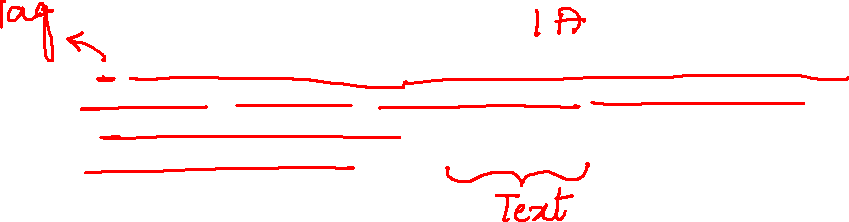 Tag
1A
Text